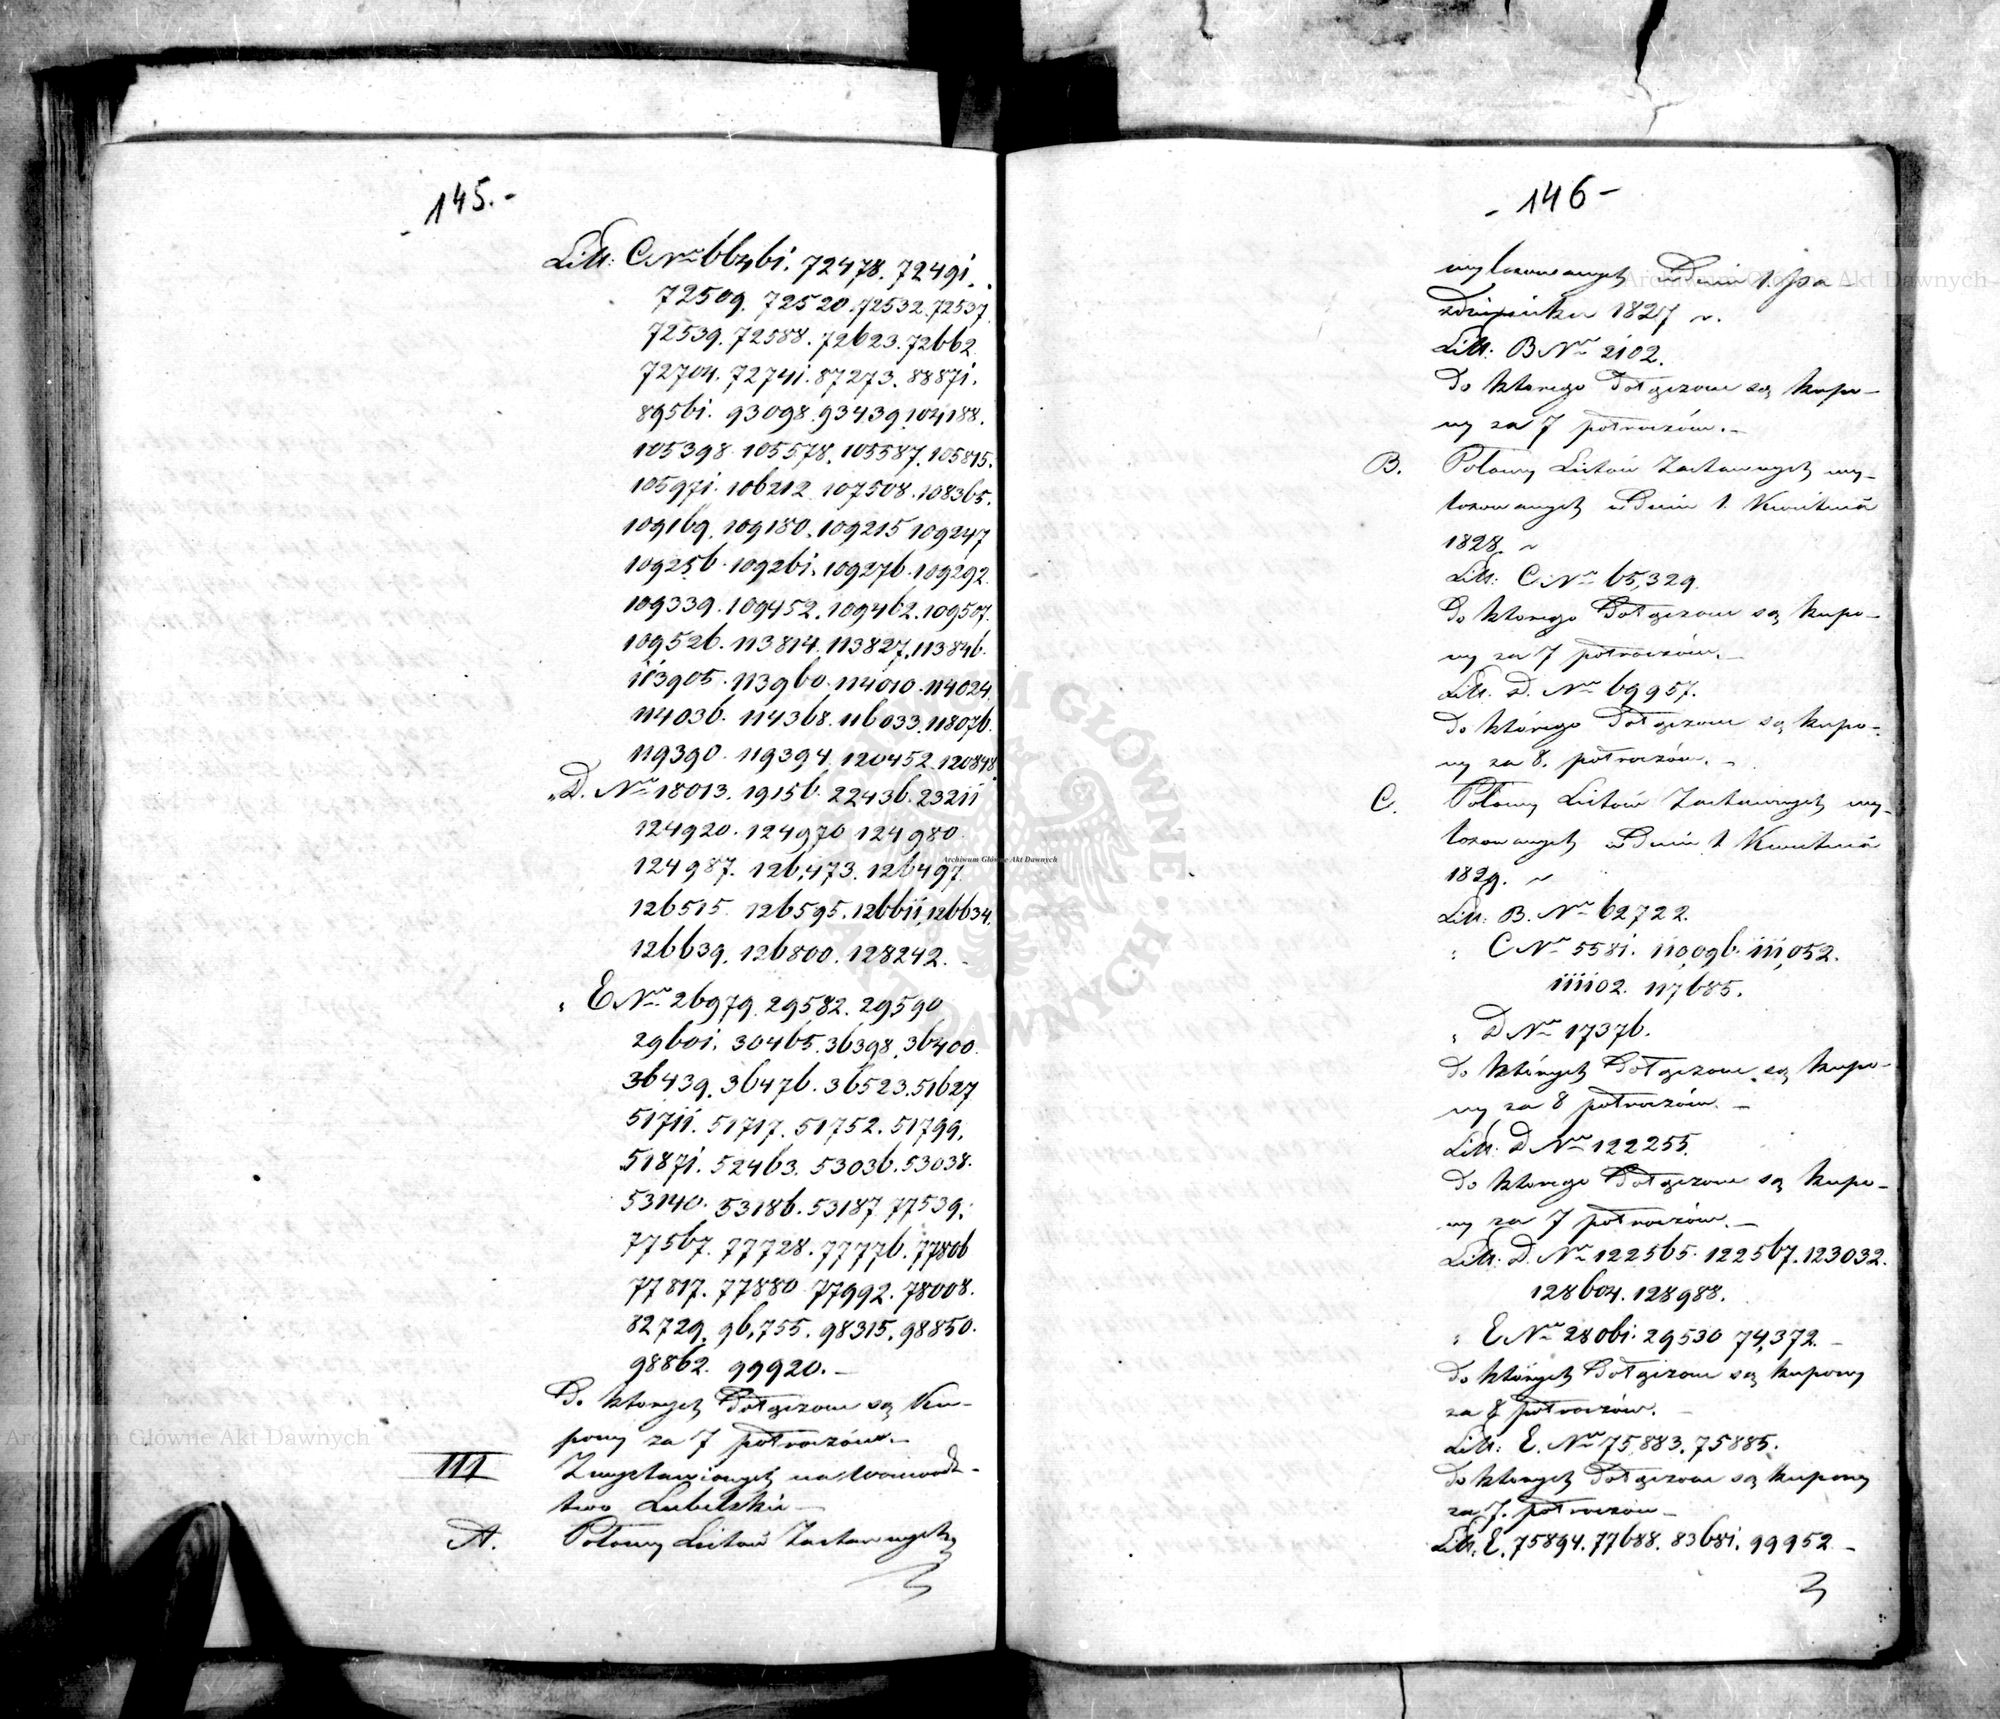 - 145. -
Litt: C Nro 66461. 72478. 72491.
72509. 72520. 72532. 72537.
72539. 72588. 72623. 72662.
72704. 72741. 87273. 88871.
89561. 93098. 93439. 104188.
105398. 105578. 105587. 105815.
105971. 106212. 107508. 108365.
109169. 109180. 109215 109247
109256. 109261. 109276. 109292.
109339. 109452. 109462. 109507.
109526. 113814. 113827. 113846.
113905. 113960. 114010. 114024.
114036. 114368. 116033. 118076.
119390. 119394. 120452. 120848.
„ D. Nro 18013. 19156. 22436. 23211
124920. 124970 124980.
124987. 126,473. 126497.
126515. 126595. 126611. 126634.
126639. 126800. 128242. -
„ E Nro 26979. 29582. 29590
29601. 30465. 36398. 36400.
36439. 36476. 36523. 51627
51711. 51717. 51752. 51799.
51871. 52463. 53036. 53038.
53140. 53186. 53187. 77539.
77567. 77728. 77776. 77806
77817. 77880 77992. 78008.
82729. 96,755. 98315. 98850.
98862. 99920. -
Do których dołączone są Ku-
pony za 7 półroczów. -
III Zwystawionych na Wojewodz-
two Lubelskie -
A. Połowy Listów Zastawnych
- 146 -
wylosowanych w Dniu 1. Pa-
zdziernika 1827 r.
Litt: B Nro 2102.
Do którego dołączone są kupo-
ny za 7 półroczów. -
B. Połowy Listów Zastawnych wy-
losowanych w Dniu 1. Kwietnia
1828. r
Litt: C Nro 65,329.
Do którego dołączone są kupo-
ny za 7 półroczów. -
Litt. D. Nro 69957.
Do którego dołączone są kupo-
ny za 8. półroczów. -
C. Połowy Listów Zastawnych wy-
losowanych w Dniu 1 Kwietnia
1829. r
Litt: B. Nro 62722.
„ C Nro 5581. 110,096. 111,052.
111102. 117685.
„ D Nro 17376.
Do których dołączone są kupo-
ny za 8 półroczów. -
Litt: D Nro 122255.
Do którego dołączone są kupo-
ny za 7 półroczów. -
Litt: D. Nro 122565. 122567. 123032.
128604. 128988.
„ E Nro 28061. 29530 74,372. -
Do których dołączone są kupony
za 8 półroczów. -
Litt: E. Nro 75,883. 75885.
Do których dołączone są kupony
za 7. półroczów -
Litt. E. 75894. 77688. 83681. 99952 -
Archiwum Główne Akt Dawnych
Archiwum Główne Akt Dawnych
Archiwum Główne Akt Dawnych